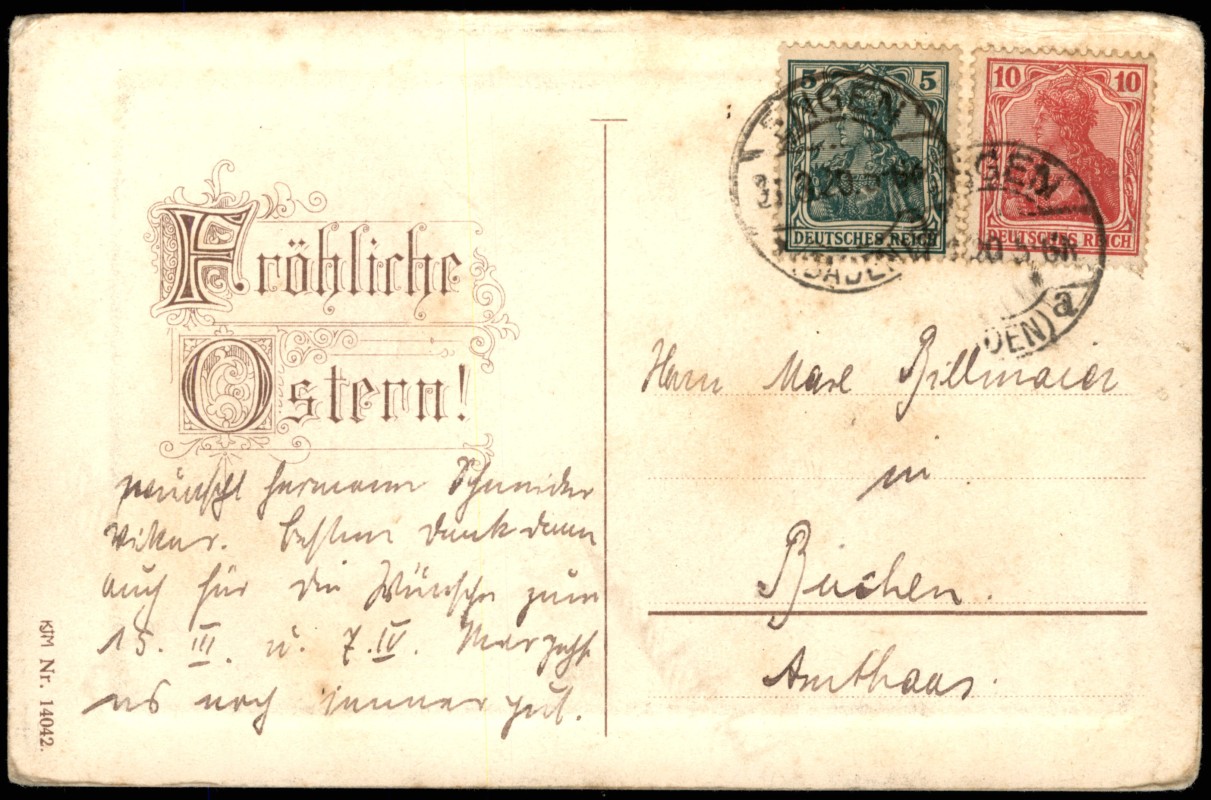 Fröhliche
Ostern!
wünscht Hermann Schneider
Vikar. Besten Dank dann
auch für die Wünsche zum
15. III. u. 7. IV. Mir geht
es noch immer gut.
KJM Nr. 14042.
5 5
DEUTSCHES REICH
10 10
DEUTSCHES REICH
SINGEN
31.3.20.
(BADEN)
a
Herrn Billmaier
in
Buchen.
Amthaus.